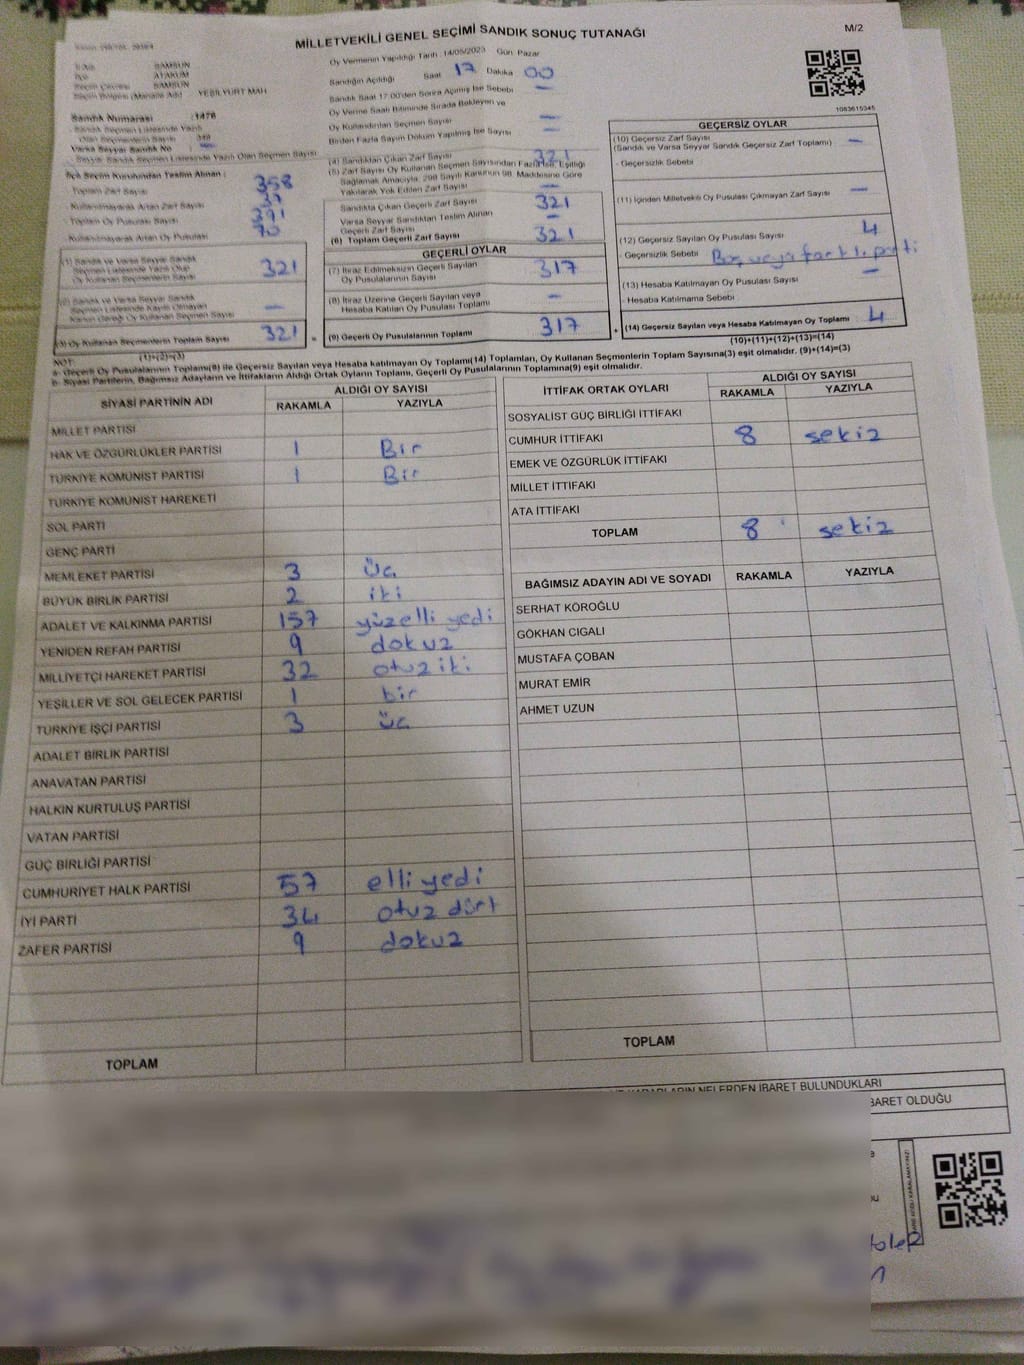 MİLLETVEKİLİ GENEL SEÇİMİ SANDIK SONUÇ TUTANAĞI
M/2
İli SAMSUN
İlçe ATAKUM
Seçim Çevresi SAMSUN
YEŞİLYURT MAH
Sandık Numarası :1476
- Sandık Seçmen Listesinde Yazılı
Olan Seçmenlerin Sayısı
Varsa Seyyar Sandık No
- Seyyar Sandık Seçmen Listesinde Yazılı Olan Seçmen Sayısı
İlçe Seçim Kurulundan Teslim Alınan :
- Toplam Zarf Sayısı 358
- Kullanılmayarak Artan Zarf Sayısı
- Toplam Oy Pusulası Sayısı 391
- Kullanılmayarak Artan Oy Pusulası 70
(1) Sandık ve Varsa Seyyar Sandık
Seçmen Listesinde Yazılı Olup
Oy Kullanan Seçmenlerin Sayısı 321
(2) Sandık ve Varsa Seyyar Sandık
Seçmen Listesinde Kayıtlı Olmayan
Kanun Gereği Oy Kullanan Seçmen Sayısı —
(3) Oy Kullanan Seçmenlerin Toplam Sayısı 321 =
(1)+(2)=(3)
Oy Vermenin Yapıldığı Tarih : 14/05/2023 Gün Pazar
Sandığın Açıldığı Saat 17 Dakika 00
Sandık Saat 17:00'den Sonra Açılmış İse Sebebi —
Oy Verme Saati Bitiminde Sırada Bekleyen ve
Oy Kullandırılan Seçmen Sayısı —
Birden Fazla Sayım Döküm Yapılmış İse Sayısı —
(4) Sandıktan Çıkan Zarf Sayısı 321
(5) Zarf Sayısı Oy Kullanan Seçmen Sayısından Fazla İse, Eşitliği
Sağlamak Amacıyla, 298 Sayılı Kanunun 98. Maddesine Göre
Yakılarak Yok Edilen Zarf Sayısı —
Sandıkta Çıkan Geçerli Zarf Sayısı 321
Varsa Seyyar Sandıktan Teslim Alınan
Geçerli Zarf Sayısı —
(6) Toplam Geçerli Zarf Sayısı 321
GEÇERLİ OYLAR
(7) İtiraz Edilmeksizin Geçerli Sayılan
Oy Pusulalarının Sayısı 317
(8) İtiraz Üzerine Geçerli Sayılan veya
Hesaba Katılan Oy Pusulası Toplamı —
(9) Geçerli Oy Pusulalarının Toplamı 317 +
1083615345
GEÇERSİZ OYLAR
(10) Geçersiz Zarf Sayısı
(Sandık ve Varsa Seyyar Sandık Geçersiz Zarf Toplamı) —
- Geçersizlik Sebebi
(11) İçinden Milletvekili Oy Pusulası Çıkmayan Zarf Sayısı —
(12) Geçersiz Sayılan Oy Pusulası Sayısı 4
- Geçersizlik Sebebi Boş veya farklı parti
(13) Hesaba Katılmayan Oy Pusulası Sayısı —
- Hesaba Katılmama Sebebi
(14) Geçersiz Sayılan veya Hesaba Katılmayan Oy Toplamı 4
(10)+(11)+(12)+(13)=(14)
NOT:
a- Geçerli Oy Pusulalarının Toplamı(9) ile Geçersiz Sayılan veya Hesaba katılmayan Oy Toplamı(14) Toplamları, Oy Kullanan Seçmenlerin Toplam Sayısına(3) eşit olmalıdır. (9)+(14)=(3)
b- Siyasi Partilerin, Bağımsız Adayların ve İttifakların Aldığı Ortak Oyların Toplamı, Geçerli Oy Pusulalarının Toplamına(9) eşit olmalıdır.
SİYASİ PARTİNİN ADI ALDIĞI OY SAYISI
RAKAMLA YAZIYLA
MİLLET PARTİSİ
HAK VE ÖZGÜRLÜKLER PARTİSİ 1 Bir
TÜRKİYE KOMÜNİST PARTİSİ 1 Bir
TÜRKİYE KOMÜNİST HAREKETİ
SOL PARTİ
GENÇ PARTİ
MEMLEKET PARTİSİ 3 üç
BÜYÜK BİRLİK PARTİSİ 2 iki
ADALET VE KALKINMA PARTİSİ 157 yüzelli yedi
YENİDEN REFAH PARTİSİ 9 dokuz
MİLLİYETÇİ HAREKET PARTİSİ 32 otuz iki
YEŞİLLER VE SOL GELECEK PARTİSİ 1 bir
TÜRKİYE İŞÇİ PARTİSİ 3 üç
ADALET BİRLİK PARTİSİ
ANAVATAN PARTİSİ
HALKIN KURTULUŞ PARTİSİ
VATAN PARTİSİ
GÜÇ BİRLİĞİ PARTİSİ
CUMHURİYET HALK PARTİSİ 57 elli yedi
İYİ PARTİ 34 otuz dört
ZAFER PARTİSİ 9 dokuz
TOPLAM
İTTİFAK ORTAK OYLARI ALDIĞI OY SAYISI
RAKAMLA YAZIYLA
SOSYALİST GÜÇ BİRLİĞİ İTTİFAKI
CUMHUR İTTİFAKI 8 sekiz
EMEK VE ÖZGÜRLÜK İTTİFAKI
MİLLET İTTİFAKI
ATA İTTİFAKI
TOPLAM 8 sekiz
BAĞIMSIZ ADAYIN ADI VE SOYADI RAKAMLA YAZIYLA
SERHAT KÖROĞLU
GÖKHAN CIGALI
MUSTAFA ÇOBAN
MURAT EMİR
AHMET UZUN
TOPLAM
KARARLARIN NELERDEN İBARET BULUNDUKLARI
BARET OLDUĞU